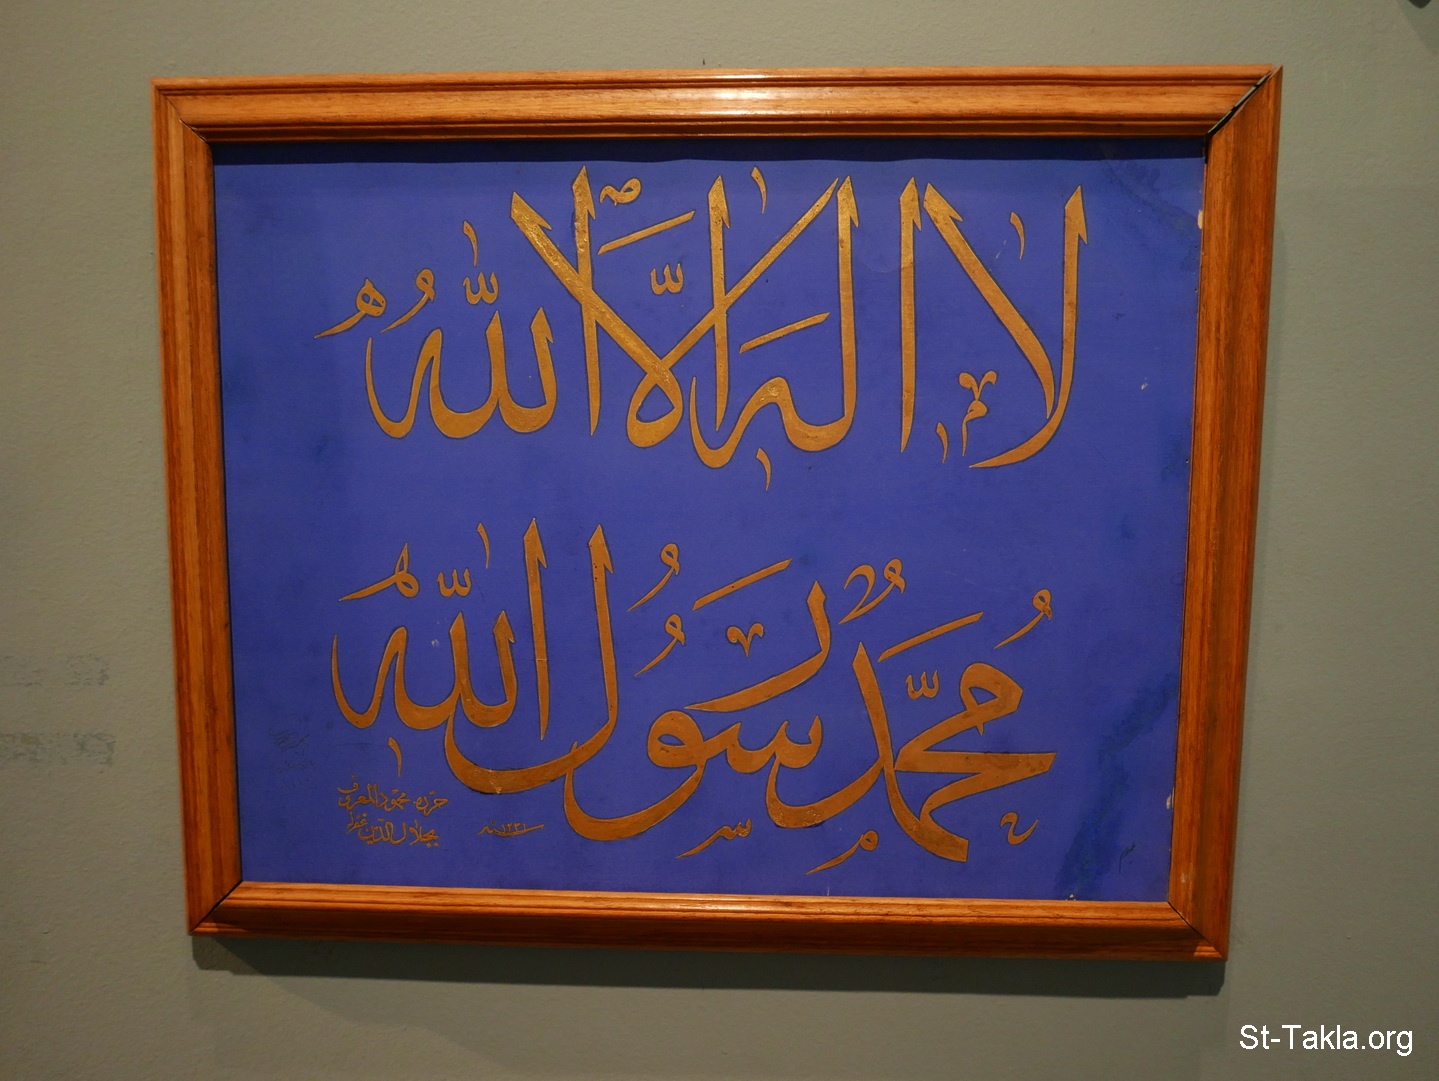 لَا إِلٰهَ إِلَّا اللّٰهُ
مُحَمَّدٌ رَسُولُ اللّٰهِ
حرره محمود المعروف
بجلال الدين
سنة
St-Takla.org